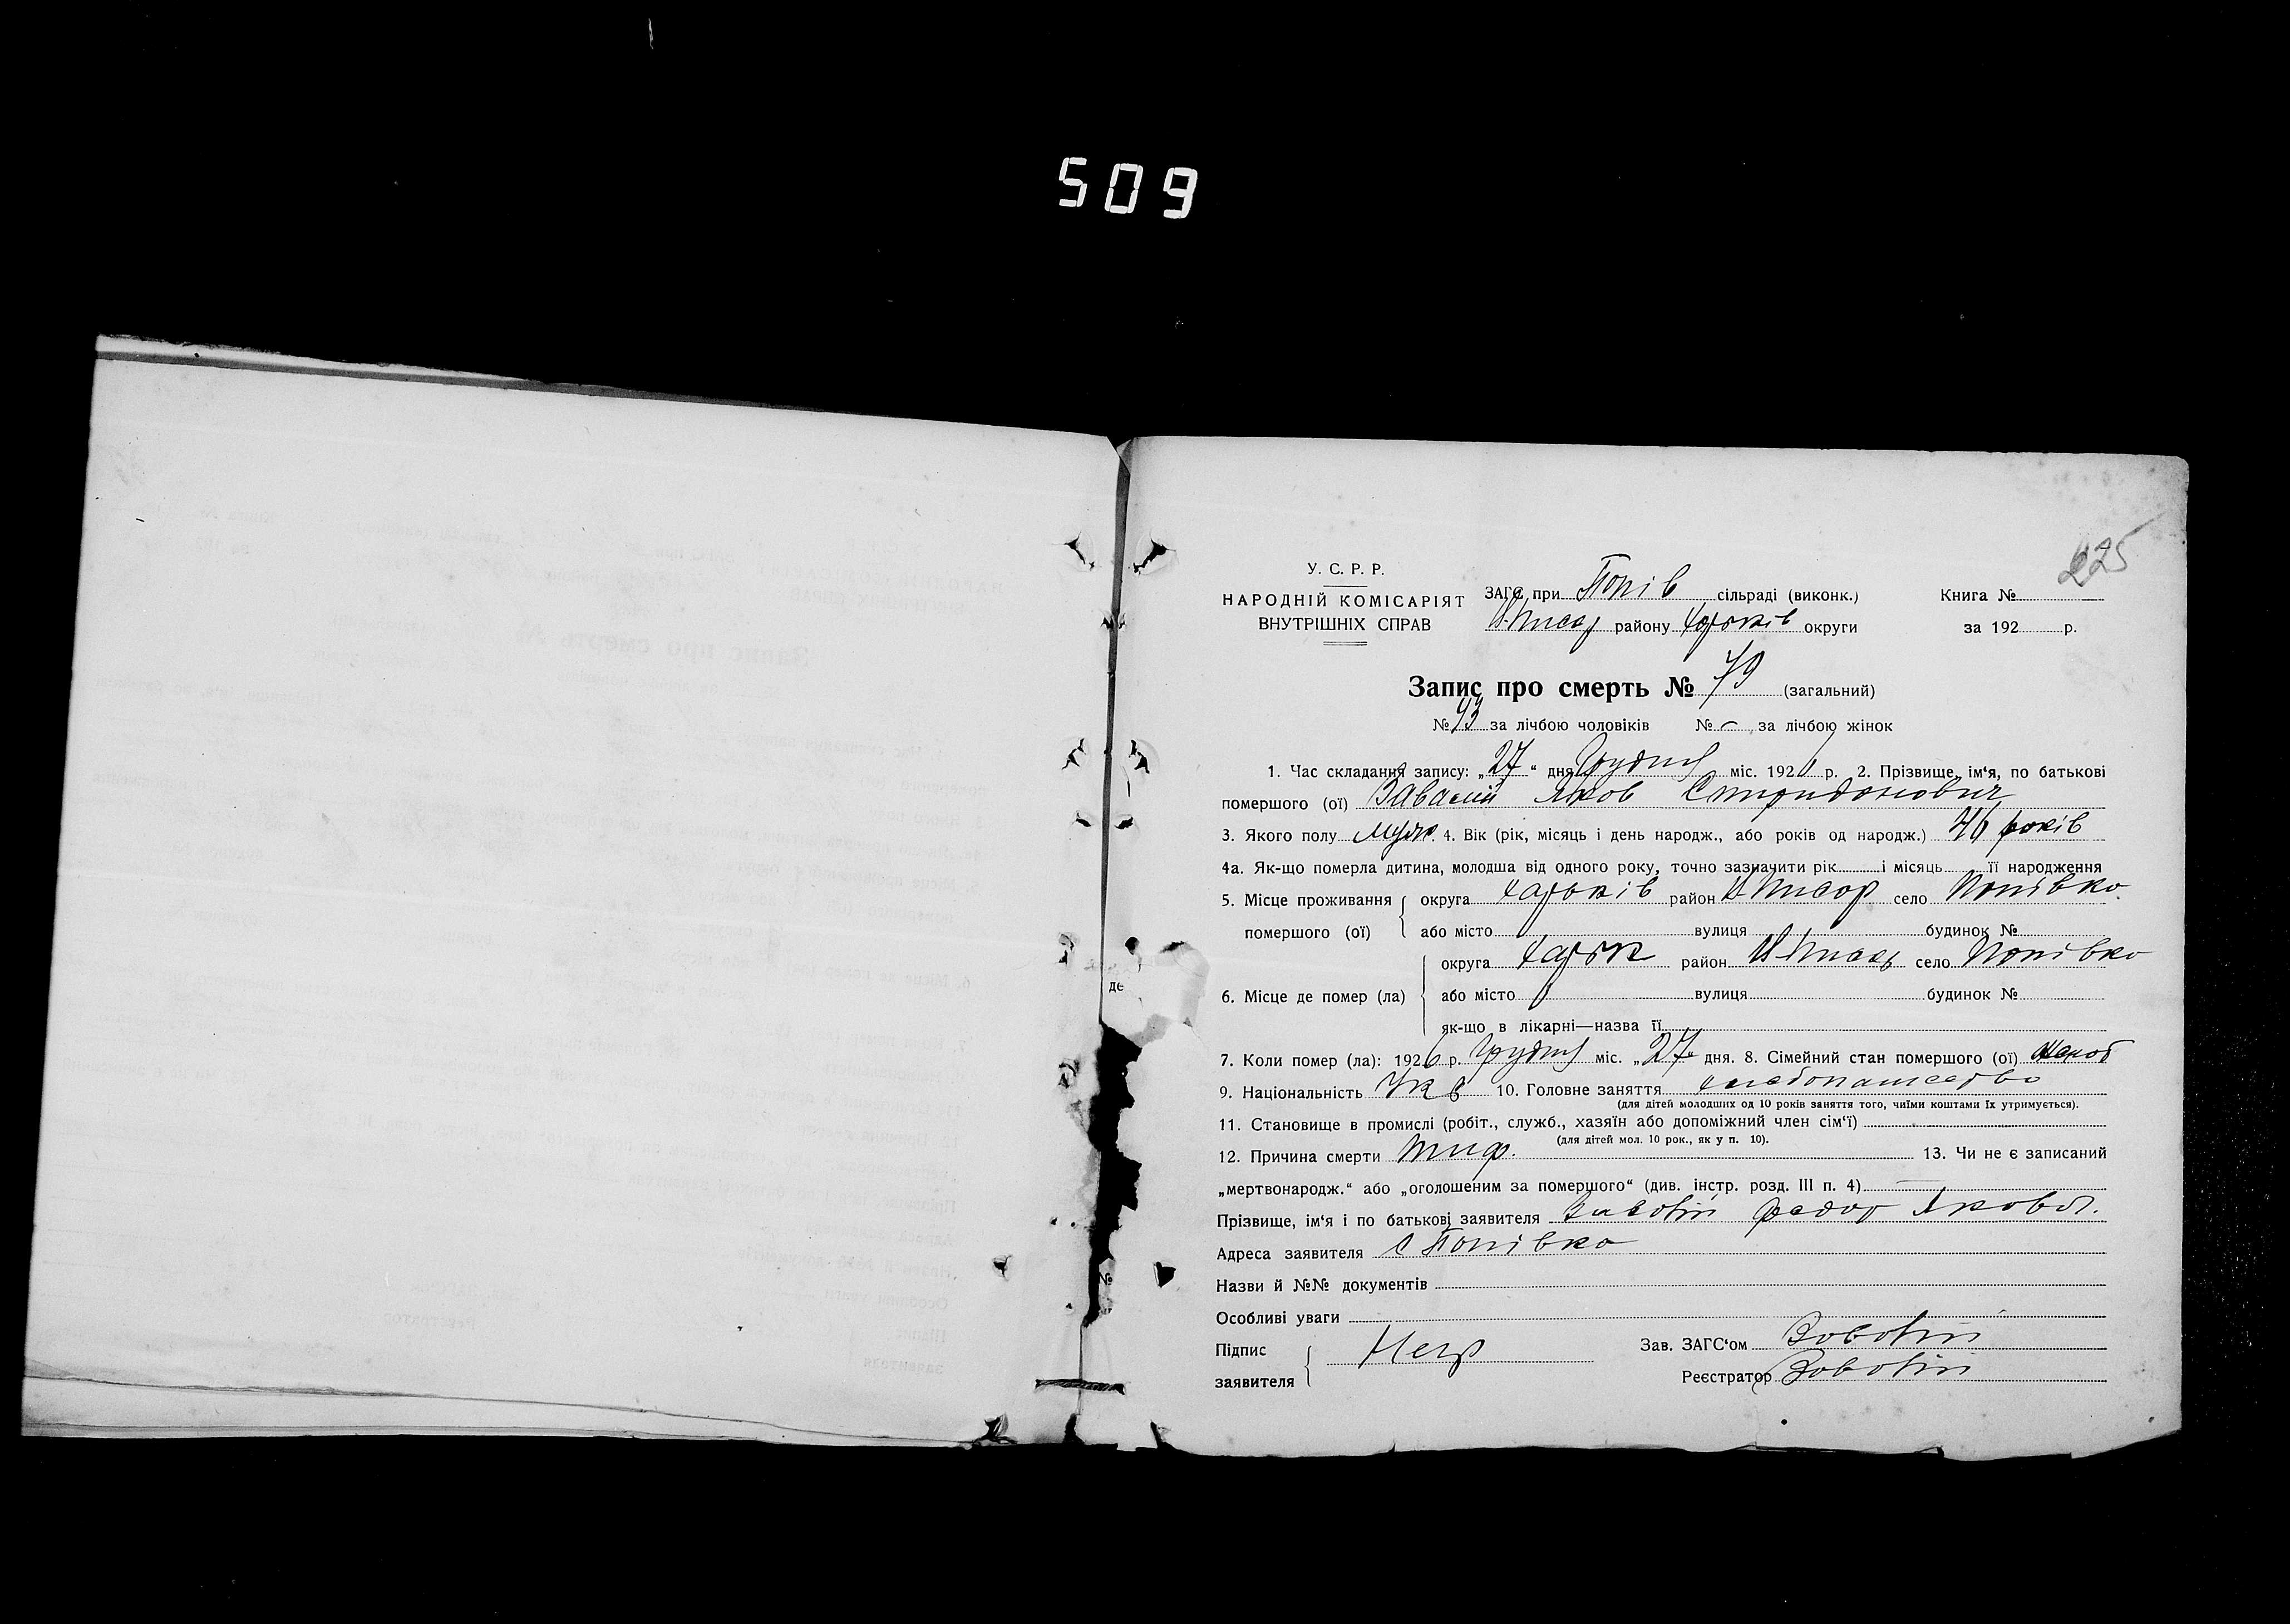 509
225
У. С. Р. Р.
НАРОДНІЙ КОМІСАРІЯТ
ВНУТРІШНІХ СПРАВ
ЗАГС при Попів сільраді (виконк.)
району Харьків округи
Книга №
за 192 р.
Запис про смерть № 79 (загальний)
№ 43 за лічбою чоловіків № – за лічбою жінок
1. Час складання запису: „27“ дня Грудня міс. 192 р. 2. Прізвище, ім'я, по батькові
помершого (ої) Яков Спиридонович
3. Якого полу муж. 4. Вік (рік, місяць і день народж., або років од народж.) 46 років
4а. Як-що померла дитина, молодша від одного року, точно зазначити рік і місяць її народження
5. Місце проживання помершого (ої)
округа Харьків район село Попівка
або місто вулиця будинок №
6. Місце де помер (ла)
округа Харьк район село Попівка
або місто вулиця будинок №
як-що в лікарні—назва її
7. Коли помер (ла): 1926 р. Грудня міс. „27 дня. 8. Сімейний стан помершого (ої)
9. Національність Укр 10. Головне заняття хлебопашество
(для дітей молодших од 10 років заняття того, чиїми коштами їх утримується).
11. Становище в промислі (робіт., служб., хазяїн або допоміжний член сім'ї)
(для дітей мол. 10 рок., як у п. 10).
12. Причина смерти тиф. 13. Чи не є записаний
„мертвонародж.“ або „оголошеним за помершого“ (див. інстр. розд. III п. 4)
Прізвище, ім'я і по батькові заявителя Федор Яковл.
Адреса заявителя с Попівка
Назви й №№ документів
Особливі уваги
Підпис заявителя Негр
Зав. ЗАГС'ом
Реєстратор
де
№